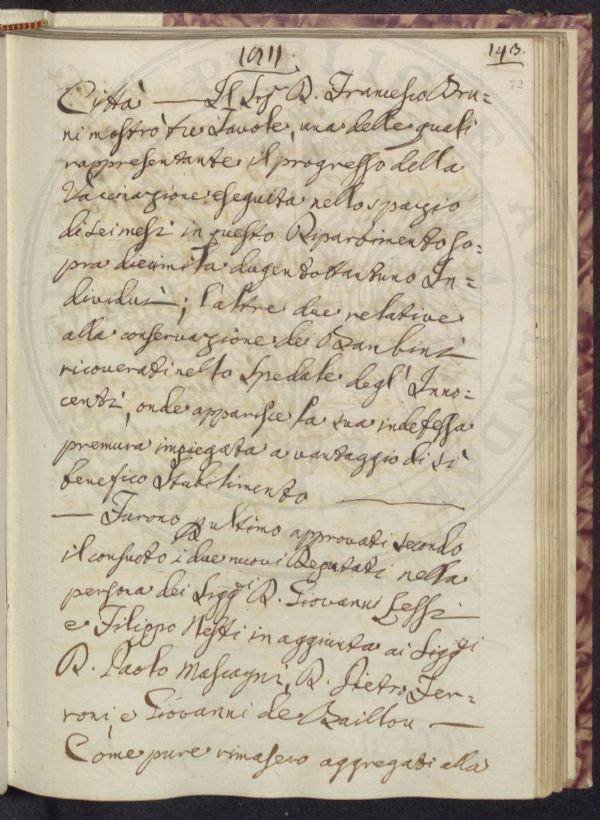 1811. 143.
72
Città — Il Sigr D. Francesco Bru=
ni mostrò tre Tavole, una delle quali
rappresentante il progresso della
Vaccinazione eseguita nello spazio
di sei mesi in questo Ripartimento so=
pra diecimila dugentottantuno In=
dividui; l'altre due relative
alla conservazione dei Bambini
ricoverati nello Spedale degl' Inno=
centi, onde apparisce la sua indefessa
premura impiegata a vantaggio di sì
benefico Stabilimento —
— Furono ultimo approvati secondo
il consueto i due nuovi Deputati nella
persona dei Siggri D. Giovanni Lessi
e Filippo Nesti in aggiunta ai Siggri
D. Paolo Mascagni, D. Pietro Fer=
roni e Giovanni de Baillou —
Come pure rimasero aggregati alla